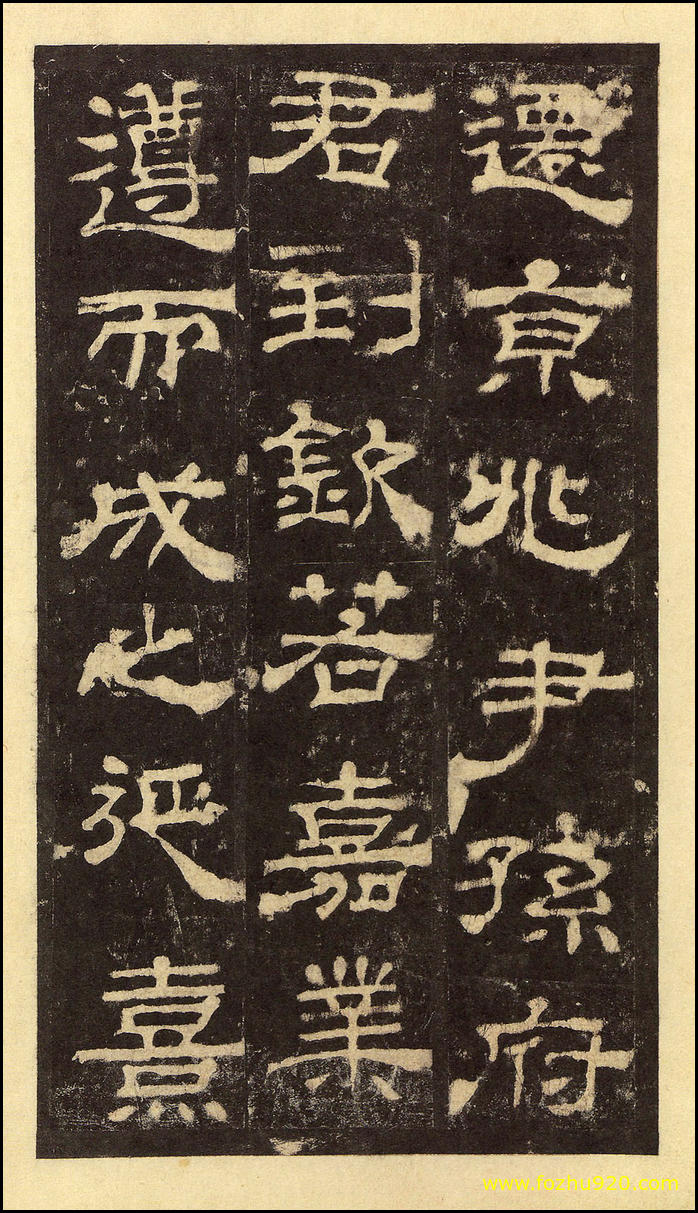 遷京兆尹孫府
君到欽若嘉業
遵而成之延熹
www.fozhu920.com